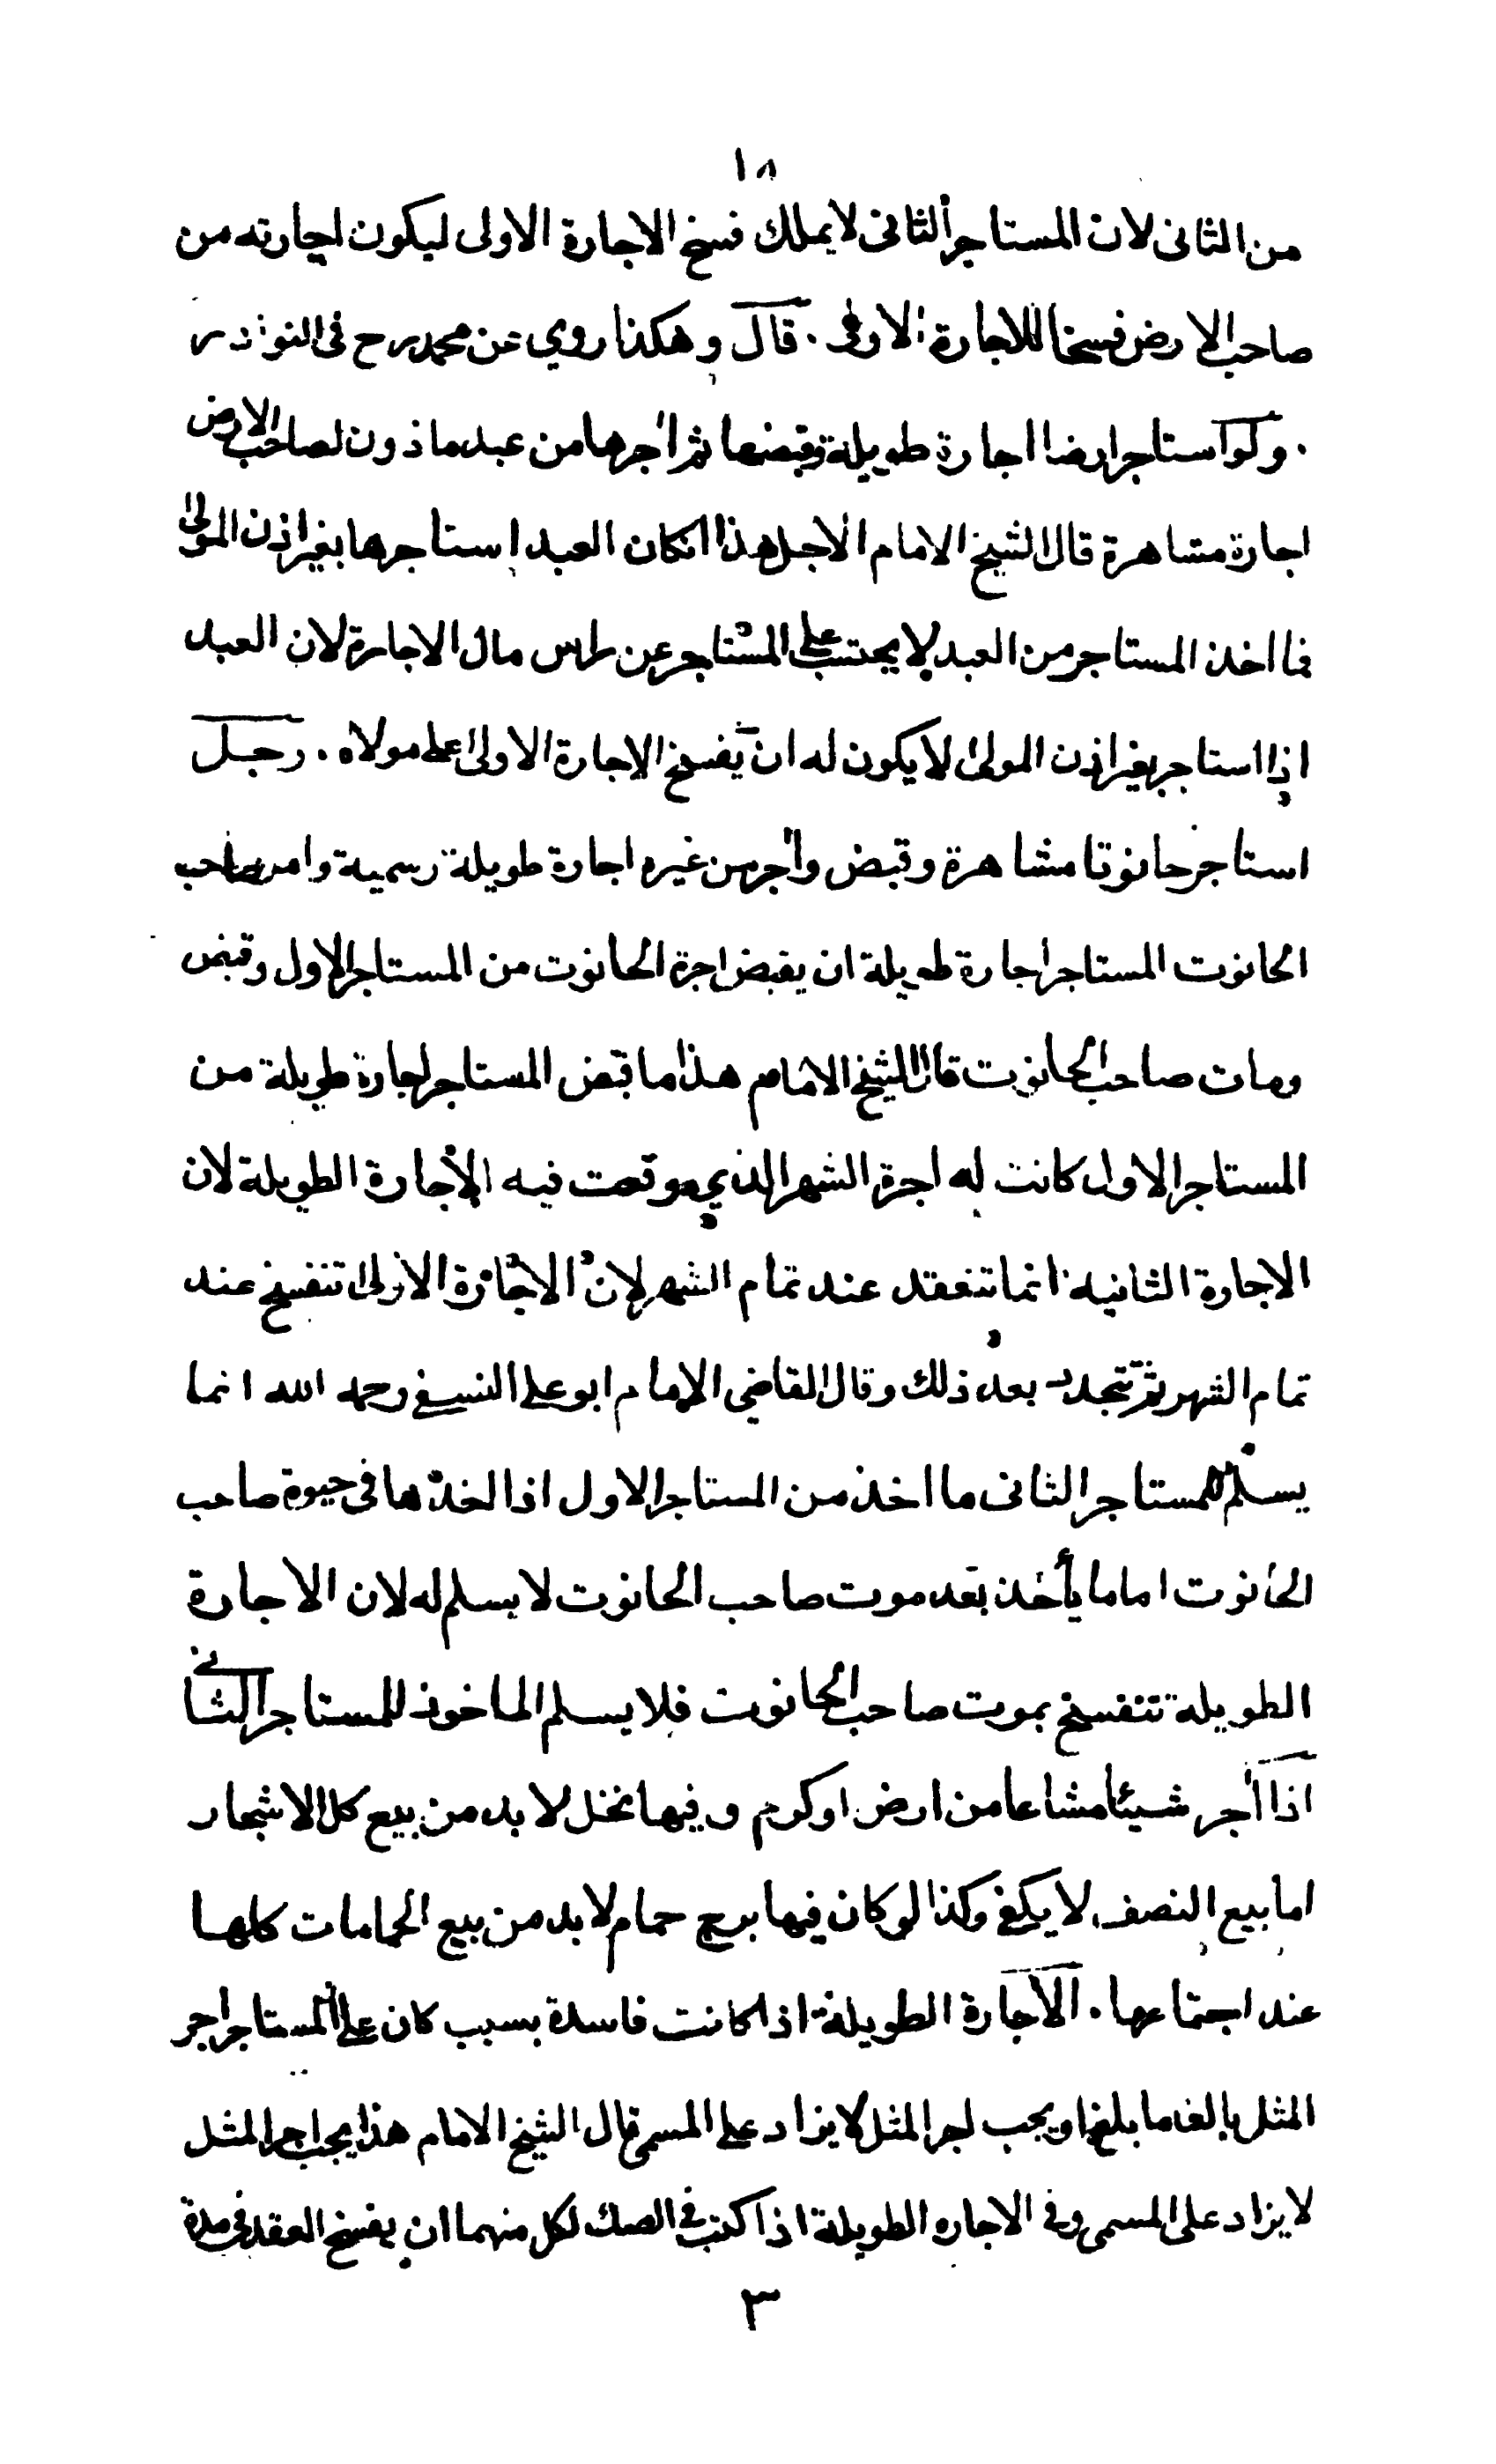 ١٨
من الثانى لان المستاجر الثانى لا يملك فسخ الاجارة الاولى ليكون اجارته من
صاحب الارض فسخا للاجارة الاولى . قال وهكذا روي عن محمد رح فى النوادر
. ولو استاجر ارضا اجارة طويلة وقبضها ثم اجرها من عبد ماذون لصاحب الارض
اجارة مشاهرة قال الشيخ الامام الاجل هذا انكان العبد استاجرها بغير اذن المولى
فما اخذ المستاجر من العبد لا يحتسب على المستاجر عن راس مال الاجارة لان العبد
اذا استاجر بغير اذن المولى لا يكون له ان يفسخ الاجارة الاولى على مولاه . رجل
استاجر حانوتا مشاهرة وقبض واجر من غيره اجارة طويلة رسمية وامر صاحب
الحانوت المستاجر اجارة طويلة ان يقبض اجرة الحانوت من المستاجر الاول وقبض
ومات صاحب الحانوت قال الشيخ الامام هذا ما قبض المستاجر اجارة طويلة من
المستاجر الاول كانت له اجرة الشهر الذي وقعت فيه الاجارة الطويلة لان
الاجارة الثانية انما تنعقد عند تمام الشهر لان الاجارة الاولى تنفسخ عند
تمام الشهر ثم تتجدد بعد ذلك وقال القاضي الامام ابو على النسفي رحمه الله انما
يسلم للمستاجر الثانى ما اخذ من المستاجر الاول اذا اخذها فى حيوة صاحب
الحانوت اما ما يأخذ بعد موت صاحب الحانوت لا يسلم له لان الاجارة
الطويلة تنفسخ بموت صاحب الحانوت فلا يسلم الماخوذ للمستاجر الثانى
اذا آجر شيئا مشاعا من ارض او كرم وفيها نخل لا بد من بيع كل الاشجار
اما بيع النصف لا يكفي وكذا لو كان فيها برج حمام لا بد من بيع الحمامات كلها
عند اجتماعها . الاجارة الطويلة اذا كانت فاسدة بسبب كان على المستاجر اجر
المثل بالغا ما بلغ او يجب اجر المثل لا يزاد على المسمى قال الشيخ الامام هذا يجب اجر المثل
لا يزاد على المسمى وفى الاجاره الطويلة اذا كتب فى الصك لكل منهما ان يفسخ العقد فى مدة
٣